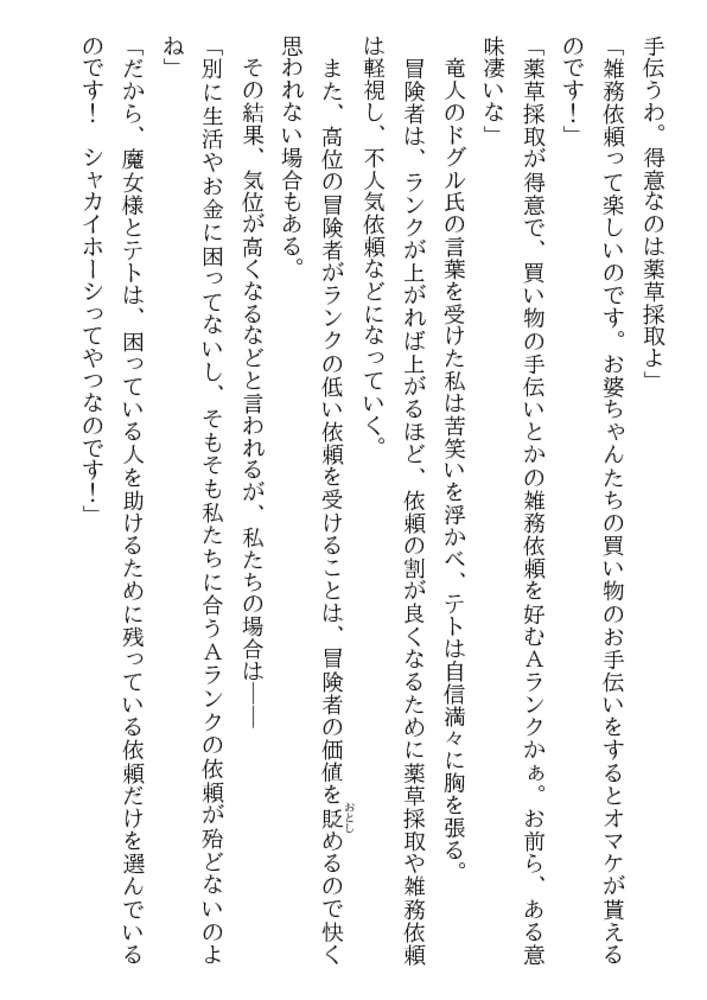 手伝うわ。得意なのは薬草採取よ」
「雑務依頼って楽しいのです。お婆ちゃんたちの買い物のお手伝いをするとオマケが貰える
のです！」
「薬草採取が得意で、買い物の手伝いとかの雑務依頼を好むＡランクかぁ。お前ら、ある意
味凄いな」
　竜人のドグル氏の言葉を受けた私は苦笑いを浮かべ、テトは自信満々に胸を張る。
　冒険者は、ランクが上がれば上がるほど、依頼の割が良くなるために薬草採取や雑務依頼
は軽視し、不人気依頼などになっていく。
　また、高位の冒険者がランクの低い依頼を受けることは、冒険者の価値を貶めるので快く
おとし
思われない場合もある。
　その結果、気位が高くなるなどと言われるが、私たちの場合は――
「別に生活やお金に困ってないし、そもそも私たちに合うＡランクの依頼が殆どないのよ
ね」
「だから、魔女様とテトは、困っている人を助けるために残っている依頼だけを選んでいる
のです！　シャカイホーシってやつなのです！」